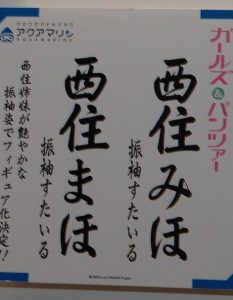 ガールズ&パンツァー
西住みほ
振袖すたいる
西住まほ
振袖すたいる
アクアマリン
AQUAMARINE
西住姉妹が艶やかな
振袖姿でフィギュア化決定!!